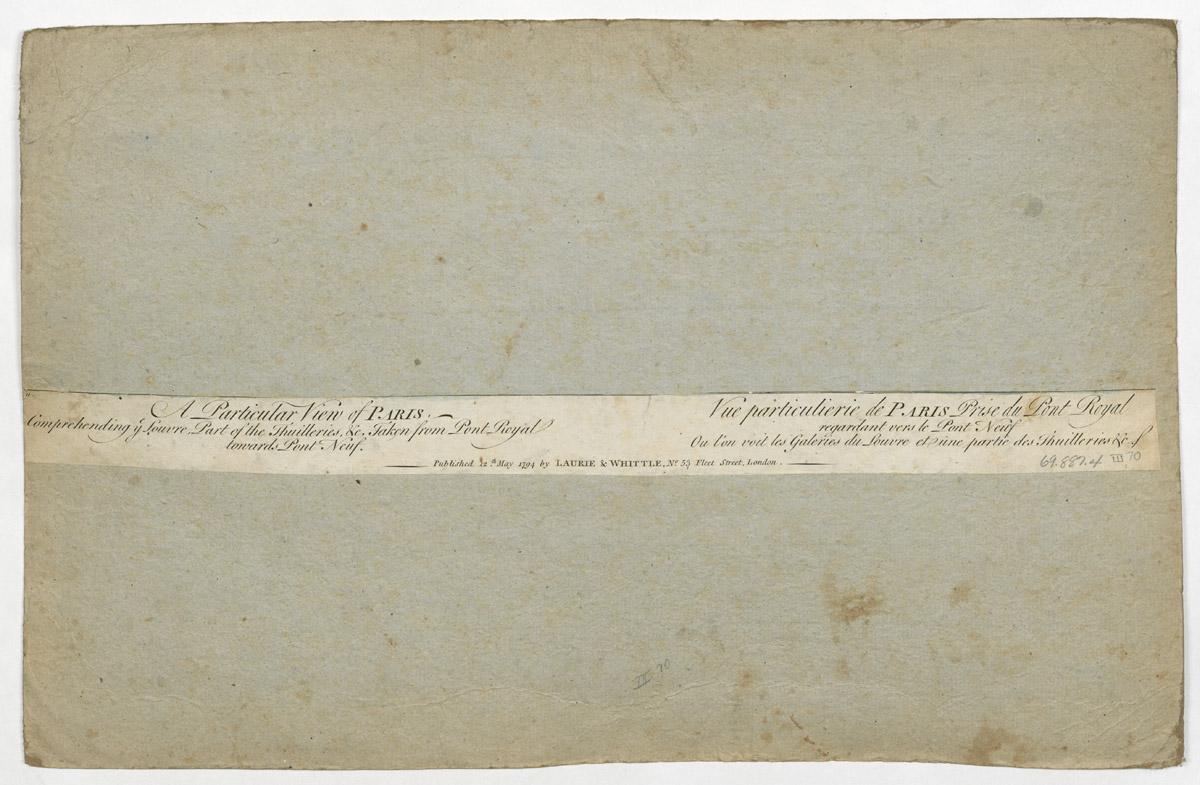 A Particular View of PARIS.
Comprehending ÿ Louvre, Part of the Thuilleries, &c. Taken from Pont Royal
towards Pont Neuf.
Vue particulierie de PARIS Prise du Pont Royal
regardant vers le Pont Neuf
Ou l'on voit les Galeries du Louvre et une partie des Thuilleries &c
Published 12th May 1794 by LAURIE & WHITTLE, No 53 Fleet Street, London.
69.887.4 III 70
II 70